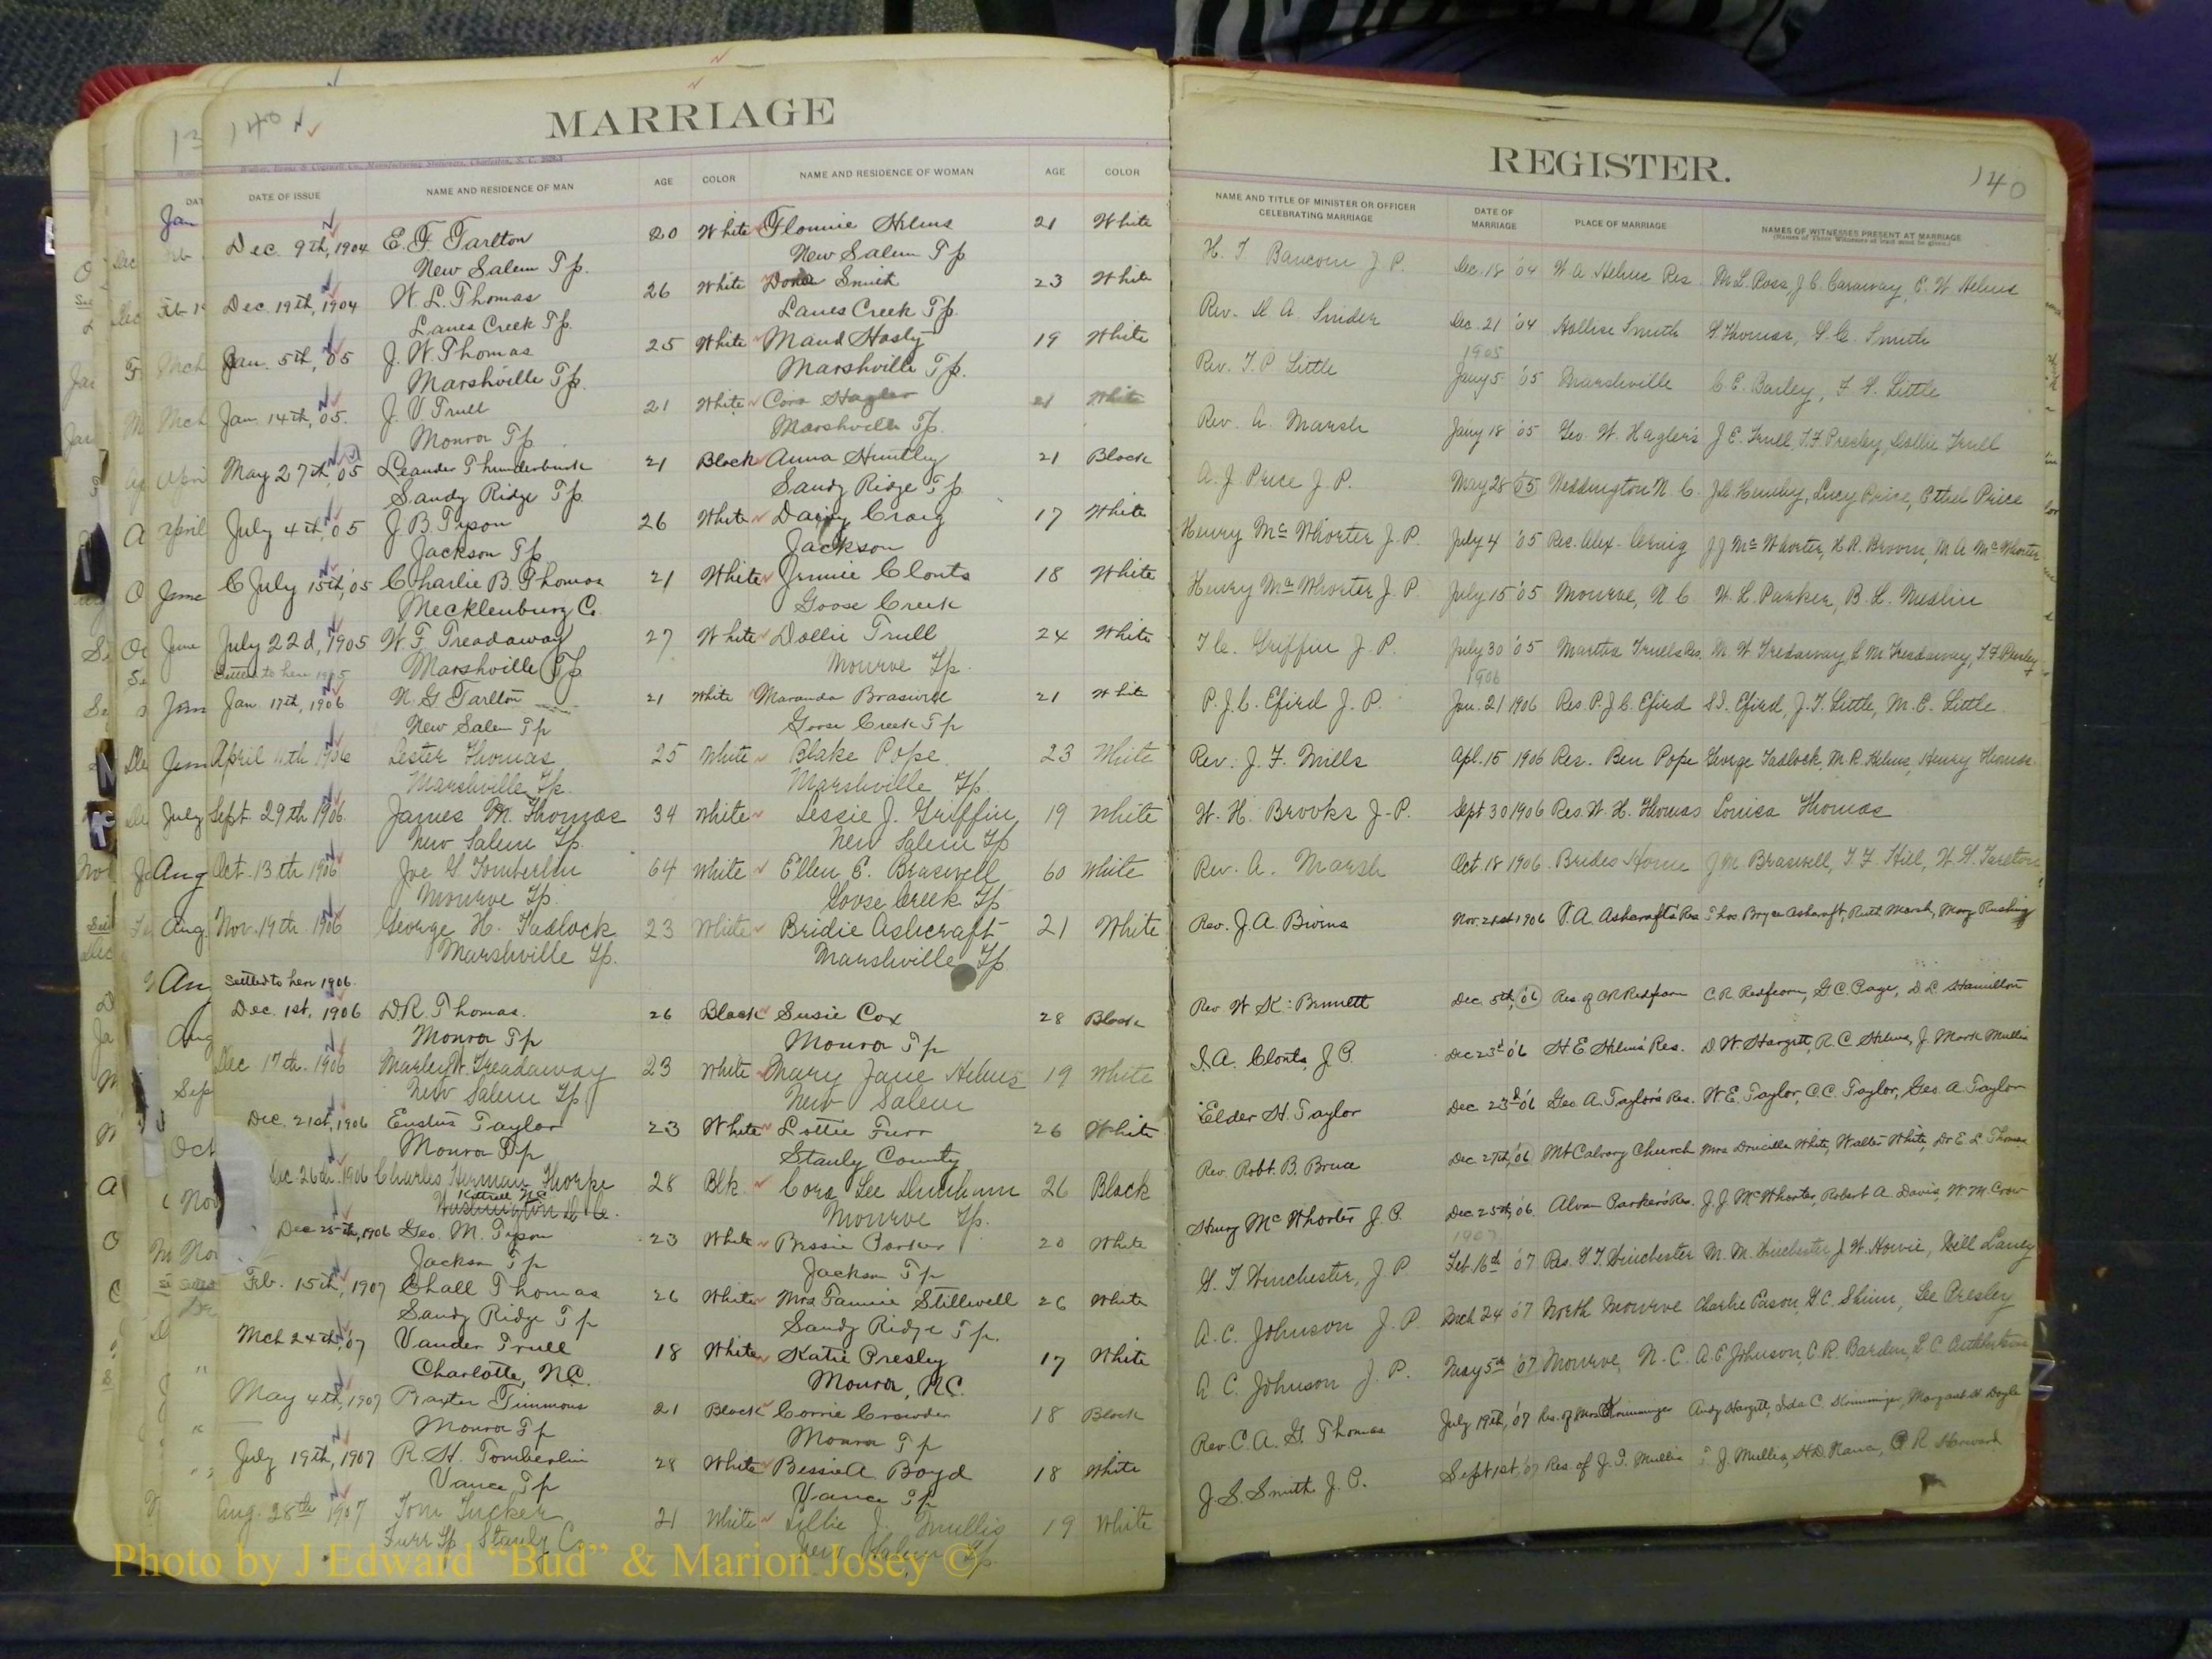 140
MARRIAGE
DATE OF ISSUE NAME AND RESIDENCE OF MAN AGE COLOR NAME AND RESIDENCE OF WOMAN AGE COLOR
Dec. 9th, 1904 E. F. Tarlton 20 White Flonnie Helms 21 White
New Salem Tp. New Salem Tp
Dec. 19th, 1904 W. L. Thomas 26 White Smith 23 White
Lanes Creek Tp. Lanes Creek Tp.
Jan. 5th, 05 J. W. Thomas 25 White Maud Hasty 19 White
Marshville Tp. Marshville Tp.
Jan 14th, 05. J. V Trull 21 White Cora Hagler 21 White
Monroe Tp Marshville Tp.
May 27th, 05 Leander Thunderburk 21 Black Anna Huntley 21 Black
Sandy Ridge Tp. Sandy Ridge Tp
July 4th, 05 J. B. Tyson 26 White Craig 17 White
Jackson Tp Jackson
July 15th, '05 Charlie B. Thomas 21 White Jennie Clonts 18 White
Mecklenburg Co. Goose Creek
July 22d, 1905 W. F. Treadaway 27 White Dollie Trull 24 White
Settled to here 1905 Marshville Tp Monroe Tp.
Jan. 17th, 1906 N. G Tarlton 21 White Maranda Braswell 21 White
New Salem Tp Goose Creek Tp
April 11th 1906 Lester Thomas 25 White Blake Pope 23 White
Marshville Tp. Marshville Tp.
Sept. 29th 1906 James M. Thomas 34 White Lessie J. Griffin 19 White
New Salem Tp. New Salem Tp
Oct. 13th 1906 Joe G. Tomberlin 64 White Ellen E. Braswell 60 White
Monroe Tp. Goose Creek Tp
Nov. 19th 1906 George H. Tadlock 23 White Bridie Ashcraft 21 White
Marshville Tp. Marshville Tp
Settled to here 1906.
Dec. 1st, 1906 D. R. Thomas. 26 Black Susie Cox 28 Black
Monroe Tp Monroe Tp
Dec 17th. 1906 Marley W. Treadaway 23 White Mary Jane Helms 19 White
New Salem Tp New Salem
Dec. 21st, 1906 Eustus Taylor 23 White Lottie Furr 26 White
Monroe Tp Stanly County
Dec. 26th. 1906 Charles Herman Thorpe 28 Blk. Cora Lee Dunham 26 Black
Kittrell NC
Washington D. C. Monroe Tp.
Dec 25th, 1906 Geo. M. Tyson 23 White Bessie Parker 20 White
Jackson Tp Jackson Tp
Feb. 15th, 1907 Chall Thomas 26 White Mrs Fannie Stillwell 26 White
Sandy Ridge Tp Sandy Ridge Tp.
Mch 24th, 07 Vander Trull 18 White Katie Presley 17 White
Charlotte, N.C. Monroe, N.C.
May 4th, 1907 Baxter Timmons 21 Black Corrie Crowder 18 Black
Monroe Tp Monroe Tp
July 19th, 1907 R. H. Tomberlin 28 White Bessie A. Boyd 18 White
Vance Tp Vance Tp
Aug. 28th 1907 Tom Tucker 21 White Lillie J. Mullis 19 White
Furr Tp Stanly Co. New Salem Tp.
REGISTER. 140
NAME AND TITLE OF MINISTER OR OFFICER CELEBRATING MARRIAGE DATE OF MARRIAGE PLACE OF MARRIAGE NAMES OF WITNESSES PRESENT AT MARRIAGE
(Names of Three Witnesses at least must be given.)
H. T. Baucom J. P. Dec. 18 '04 W. A. Helms Res. M. L. Ross, J. C. Caraway, C. W. Helms
Rev. A. Snider Dec. 21 '04 Hollise Smith Thomas, Smith
1905
Rev. T. P. Little Jany 5 '05 Marshville C. E. Bailey, Little
Rev. A. Marsh Jany 18 '05 Geo. W. Hagler's J. E. Trull, T. F. Presley, Dollie Trull
A. J. Price J. P. May 28 05 Weddington N. C. Lucy Price, Ethel Price
Henry McWhorter J. P. July 4 '05 Res. Alex. Craig J J McWhorter, H. R. Broom, M. A. McWhorter
Henry McWhorter J. P. July 15 '05 Monroe, N. C. W. L. Parker, B. L. Medlin
T. C. Griffin J. P. July 30 '05 Martha Trulls Res. M. W. Tredaway, C. M. Treadaway, T. F. Presley
1906
P. J. C. Efird J. P. Jan. 21 1906 Res. P. J. C. Efird S. I. Efird, J. T. Little, M. C. Little.
Rev. J. F. Mills Apl. 15 1906 Res. Ben Pope George Tadlock, M. R. Helms, Henry Thomas
W. H. Brooks J. P. Sept 30 1906 Res. W. H. Thomas Louisa Thomas
Rev. A. Marsh Oct. 18 1906 Brides Home J. M. Braswell, T. F. Hill, W. G. Tarlton
Rev. J. A. Bivins Nov. 21st 1906 V. A. Ashcraft's Res Thos Bryce Ashcraft, Ruth Marsh, Mary Rushing
Rev W. K. Bennett Dec 5th, 06 Res. of C R Redfearn C. R. Redfearn, G. C. Page, D. L. Hamilton
I. A. Clonts, J. P. Dec 23d '06 H. E. Helms' Res. D. W. Hargett, R. C. Helms, J. Mark Mullis
Elder H. Taylor Dec. 23d '06 Geo A. Taylor's Res. W. E. Taylor, C. C. Taylor, Geo. A. Taylor
Rev. Robt. B. Bruce Dec 27th, 06 Mt Calvary Church Mrs Drucilla White, Walter White, Dr E. L. Thomas
Henry McWhorter J. P. Dec. 25th, 06. Alvan Parker's Res. J. J. McWhorter, Robert A. Davis, W. M. Crow
1907
G. T. Winchester, J. P. Feb. 16th '07 Res. G. T. Winchester M. M. Winchester, J. W. Howie, Laney
A. C. Johnson J. P. Mch 24 07 North Monroe Charlie Eason, G. C. Shinn, Lee Presley
A. C. Johnson J. P. May 5th '07 Monroe, N. C. A. C. Johnson, C. R. Barden,
Rev. C. A. G. Thomas July 19th, '07 Res. of Mrs Krimminger Andy Hargett, Ida C. Krimminger, Margaret H. Doyle
J. S. Smith J. P. Sept 1st, 07 Res. of J. I. Mullis J. Mullis, R. Harward
Photo by J Edward “Bud” & Marion Josey ©